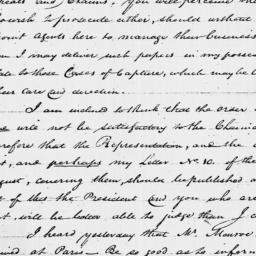 and Claims, you will perceive the
wish to prosecute either, should without
agents here to manage their business
I may deliver such papers in my posses
to those Cases of Capture, which may be
care and direction.
I am inclined to think that the order
will not be satisfactory to the
that the Representation, and the
, and perhaps my Letter No. 10. of the
, covering them, should be published
of this the President and you who are
will be better able to judge than I
I heard yesterday that Mr. Monroe
at Paris — Be so good as to inform